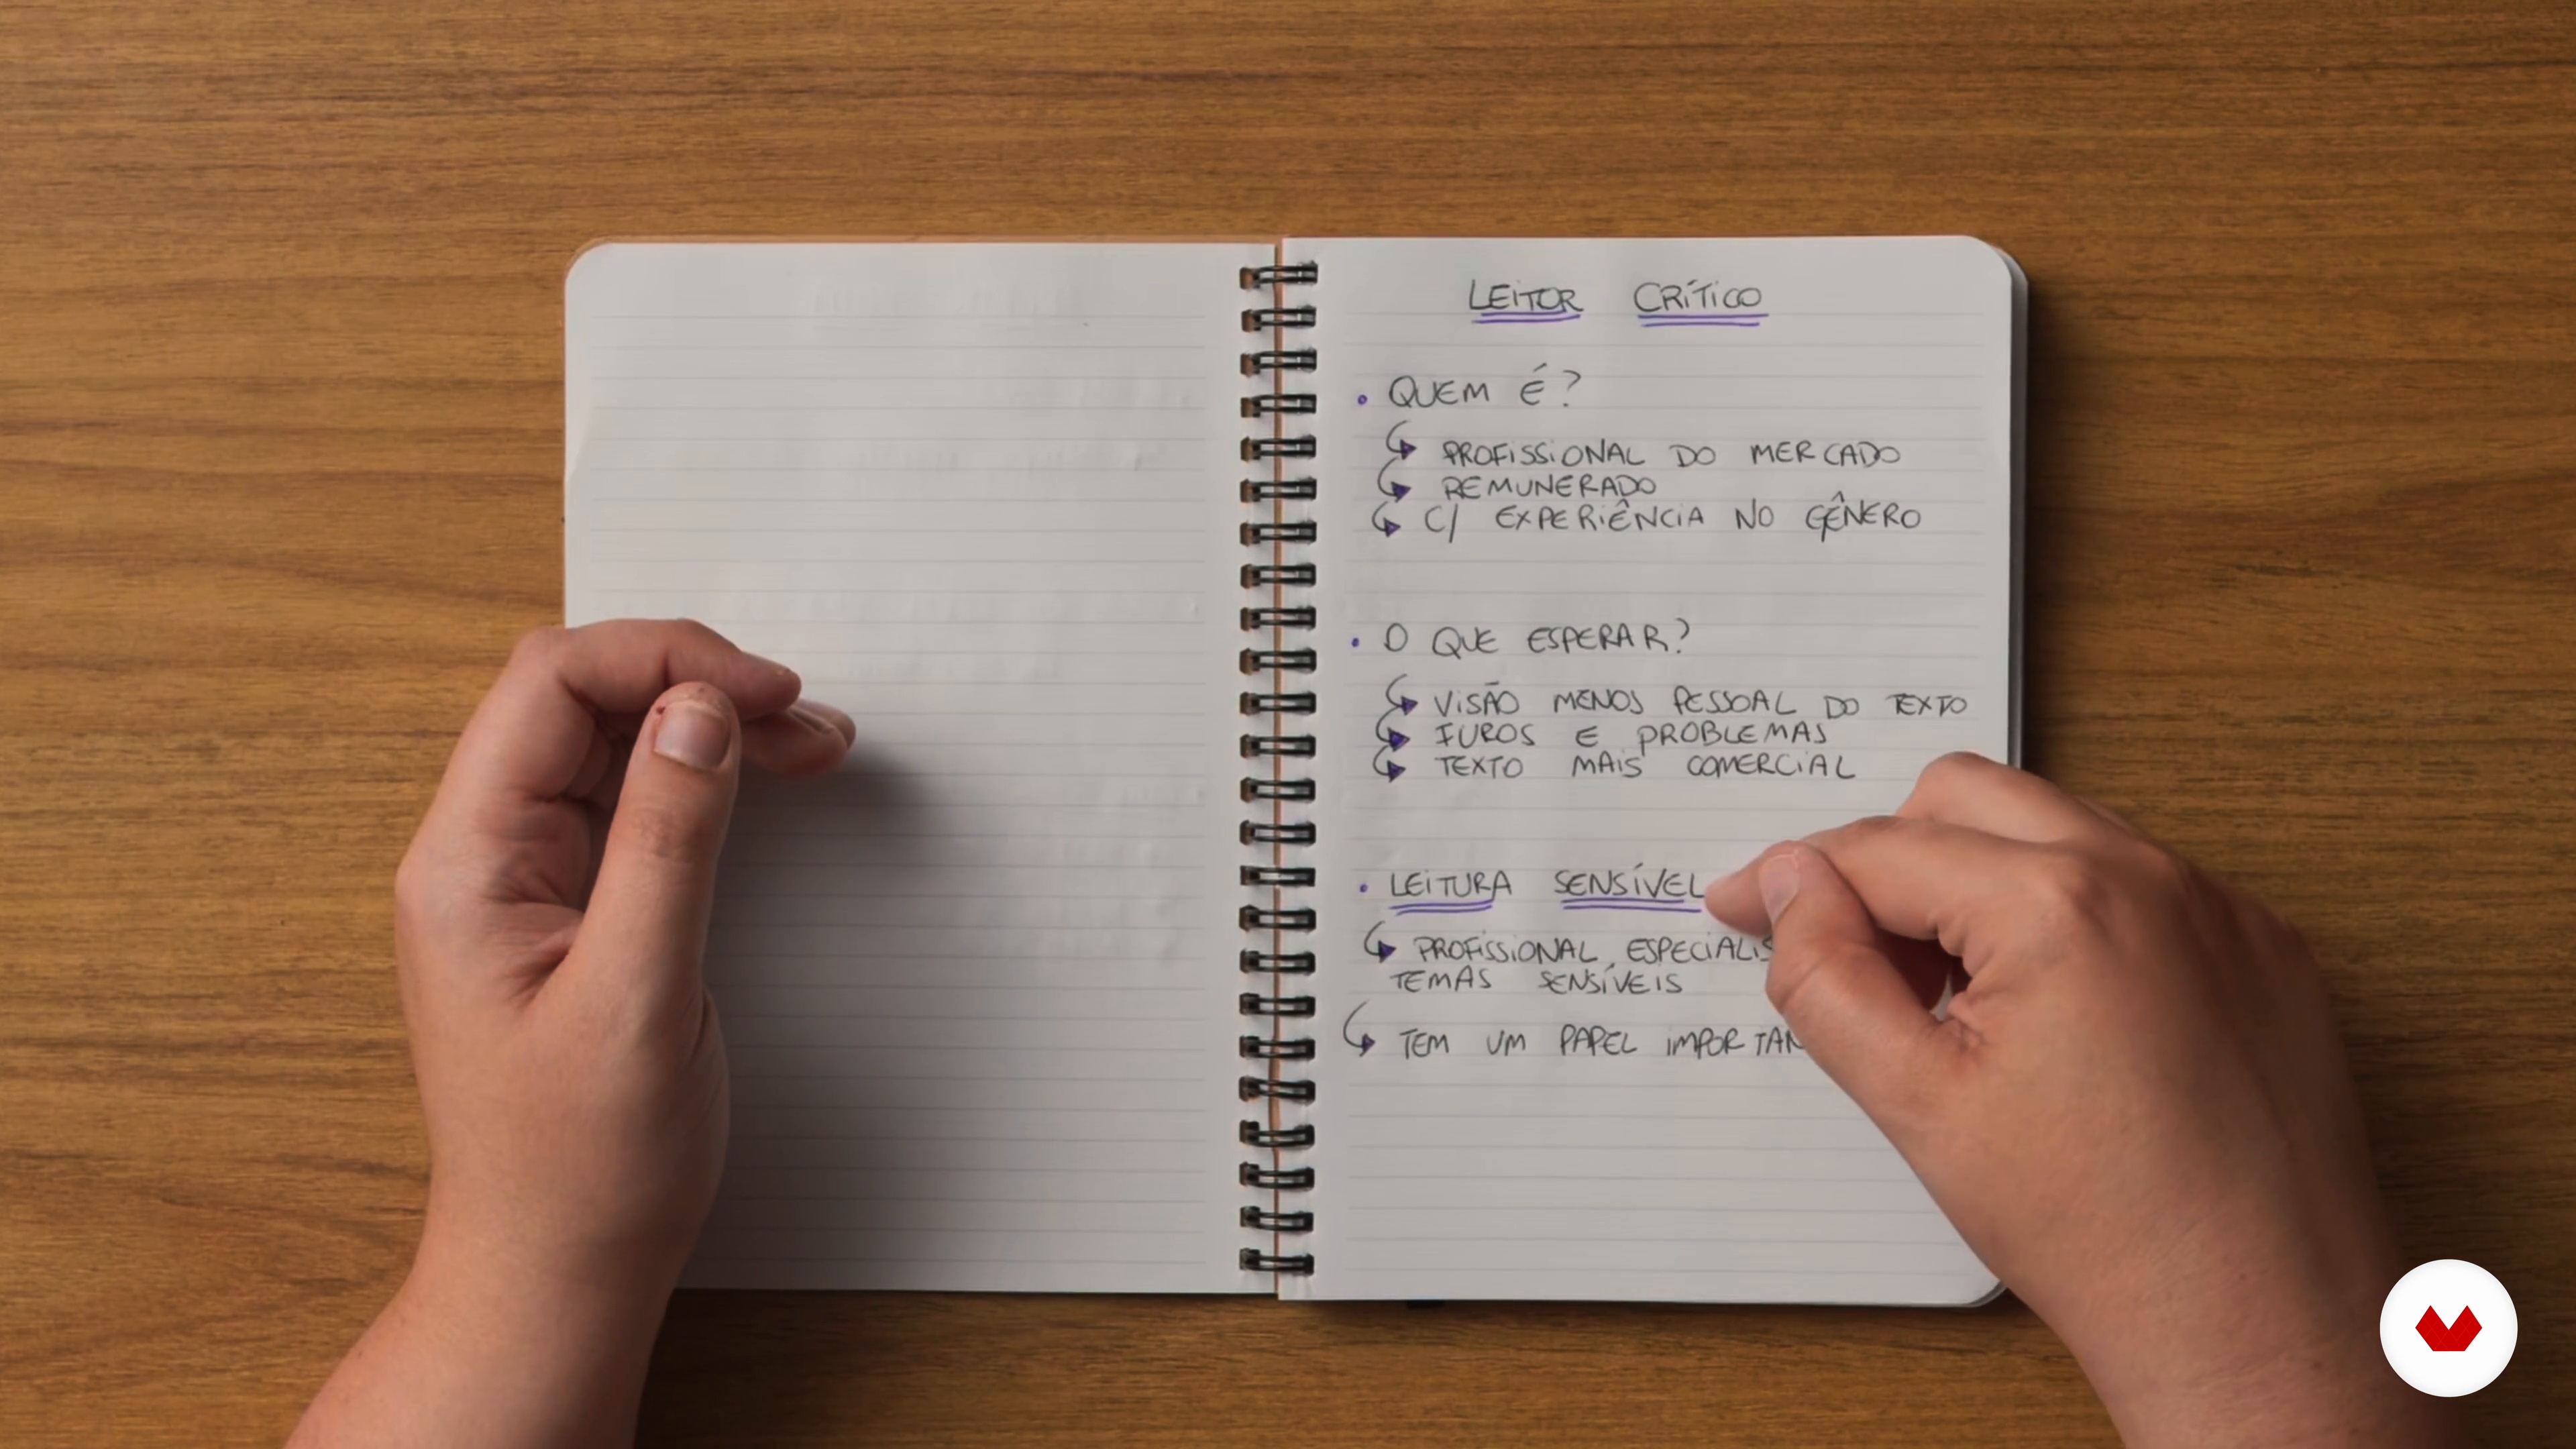 LEITOR CRÍTICO
• QUEM É?
↳ PROFISSIONAL DO MERCADO
↳ REMUNERADO
↳ C/ EXPERIÊNCIA NO GÊNERO
• O QUE ESPERAR?
↳ VISÃO MENOS PESSOAL DO TEXTO
↳ FUROS E PROBLEMAS
↳ TEXTO MAIS COMERCIAL
• LEITURA SENSÍVEL
↳ PROFISSIONAL
TEMAS SENSÍVEIS
↳ TEM UM PAPEL